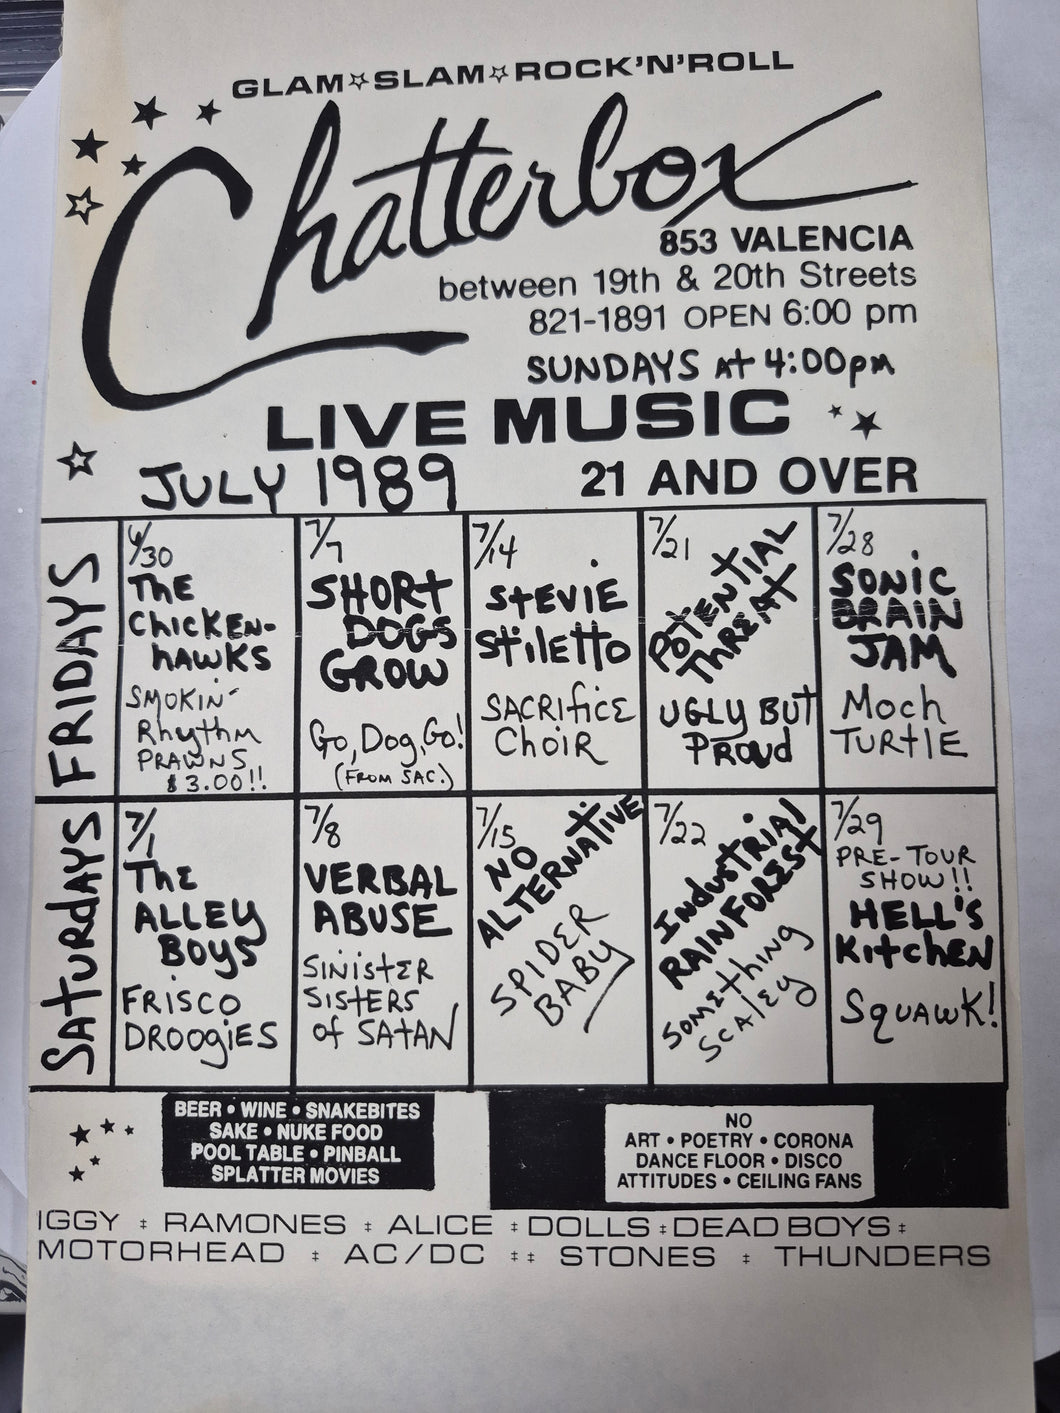 GLAM☆SLAM☆ROCK'N'ROLL
Chatterbox
853 VALENCIA
between 19th & 20th Streets
821-1891 OPEN 6:00 pm
SUNDAYS At 4:00pm
LIVE MUSIC
JULY 1989
21 AND OVER
FRIDAYS
6/30
THE
CHICKEN-
HAWKS
SMOKIN'
Rhythm
PRAWNS
$3.00!!
7/7
SHORT
DOGS
GROW
Go, Dog, Go!
(FROM SAC.)
7/14
STEVIE
Stiletto
SACRIficE
CHOIR
7/21
POTENTIAL
THREAT
UGLY BUT
PROUd
7/28
SONIC
BRAIN
JAM
Moch
TURTLE
SATURDAYS
7/1
THE
ALLEY
BOYS
FRISCO
DROOGIES
7/8
VERBAL
ABUSE
SINISTER
SISTERS
of SATAN
7/15
NO
ALTERNATIVE
SPIDER
BABY
7/22
INdUSTRIAl
RAINFOREST
SOMETHING
SCALEY
7/29
PRE-TOUR
SHOW!!
HELL'S
KITCHEN
SQUAWK!
BEER • WINE • SNAKEBITES
SAKE • NUKE FOOD
POOL TABLE • PINBALL
SPLATTER MOVIES
NO
ART • POETRY • CORONA
DANCE FLOOR • DISCO
ATTITUDES • CEILING FANS
IGGY ‡ RAMONES ‡ ALICE ‡ DOLLS ‡ DEAD BOYS ‡
MOTORHEAD ‡ AC/DC ‡‡ STONES ‡ THUNDERS